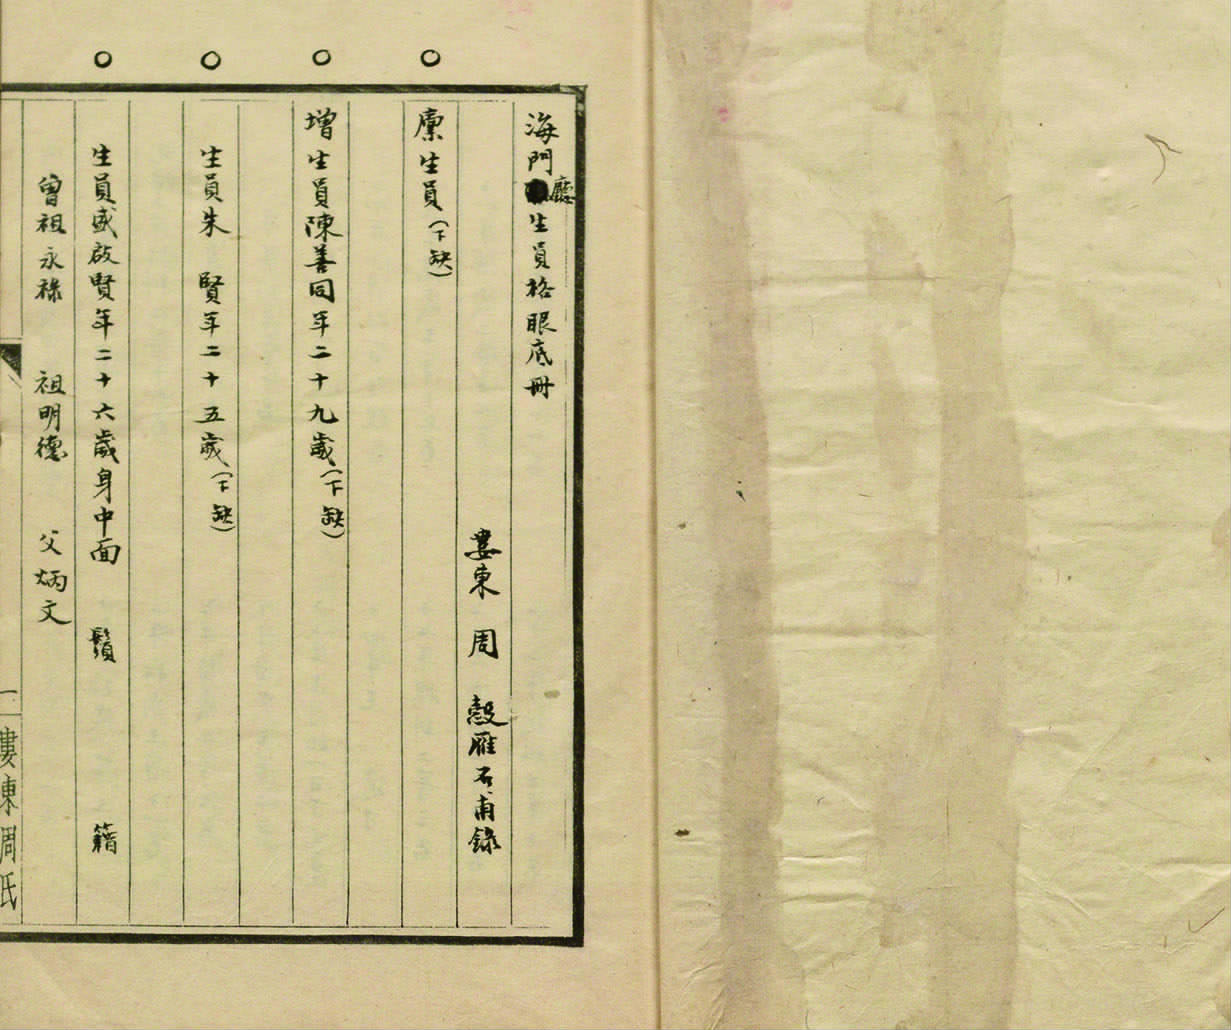 海門廳生員格眼底冊
婁東 周 慤雁石甫錄
廩生員(下缺)
增生員陳善同年二十九歲(下缺)
生員朱 賢年二十五歲(下缺)
生員盛啟賢年二十六歲身中面 鬚 籍
曾祖永祿 祖明德 父炳文
一
婁東周氏